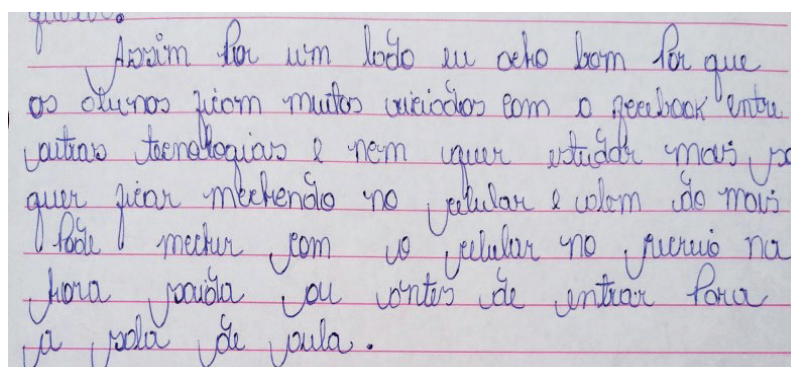 Assim Por um lado eu acho bom Por que
os alunos ficam muitos viciados com o feecbook entre
outras tecnologias e nem quer estudar mais so
quer ficar mechendo no celular e alem do mais
Pode mecher com o celular no recreio na
hora saida ou antes de entrar Para
a sala de aula.